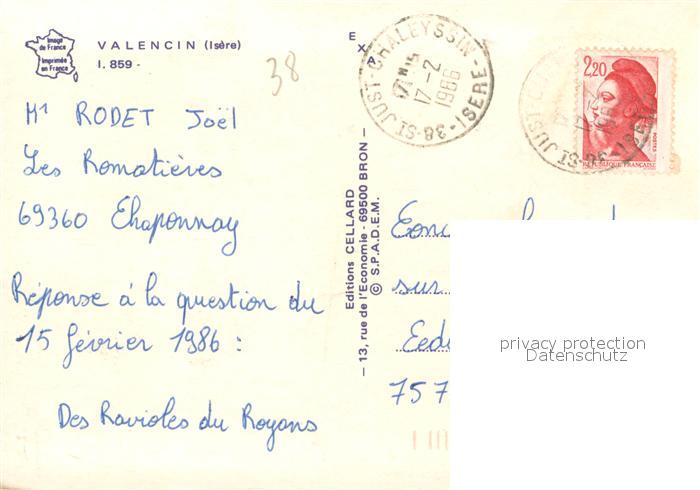 Image
de France
Imprimée
en France
VALENCIN (Isère)
I. 859 -
38
Mr RODET Joël
Les Romatières
69360 Chaponnay
Réponse à la question du
15 février 1986 :
Des Ravioles du Royans
EXA
Editions CELLARD
— 13, rue de l'Economie - 69500 BRON —
© S.P.A.D.E.M.
38-ST JUST-CHALEYSSIN-ISERE
17-2
1986
2,20
POSTES
REPUBLIQUE FRANÇAISE
sur
757
privacy protection
Datenschutz